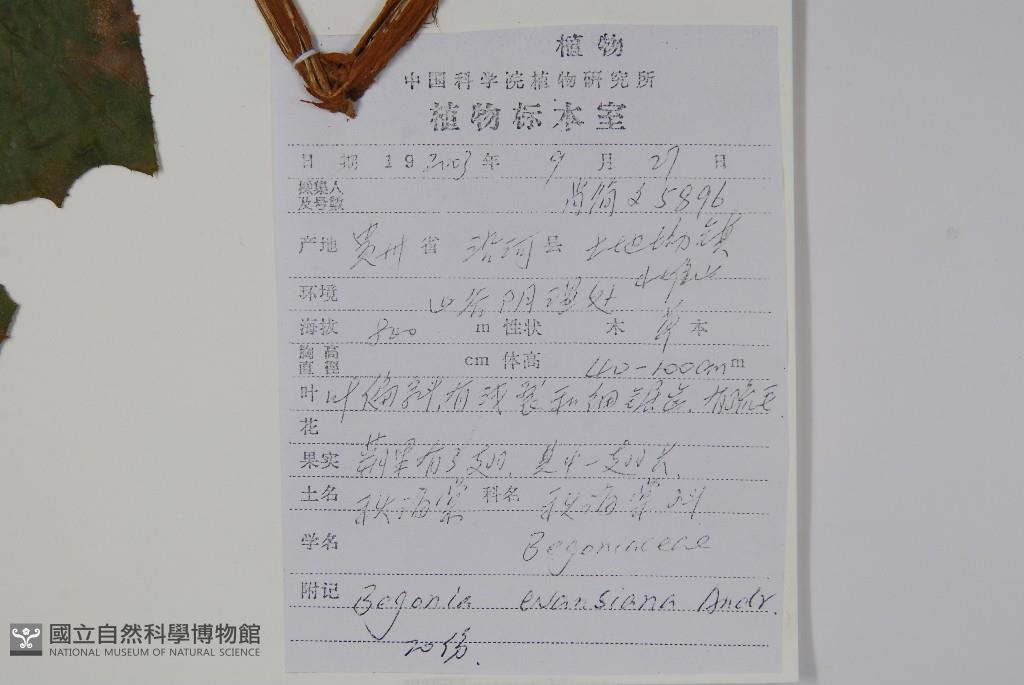 植物
中国科学院植物研究所
植物标本室
日期 19 2003 年 9 月 27 日
採集人及号数 尚衍文 5896
产地 贵州 省 沿河 县 土地坳镇
环境 山谷阴湿处
海拔 820 m 性状 木 草 本
胸高直徑 cm 体高 40-100cm m
叶 叶偏斜,有浅裂和细锯齿,有疏毛
花
果实 蒴果有3翅,其中一翅大.
土名 秋海棠 科名 秋海棠科
学名 Begoniaceae
附记 Begonia evansiana Andr.
20份.
國立自然科學博物館
NATIONAL MUSEUM OF NATURAL SCIENCE